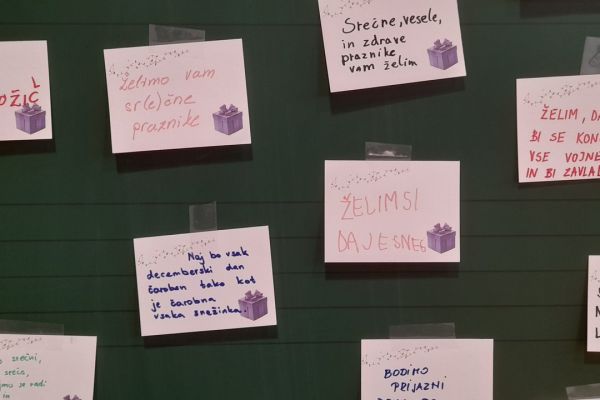 Srečne, vesele,
in zdrave
praznike
vam želim
želimo vam
sr(e)čne
praznike
OŽIČ
ŽELIM, DA
BI SE KON
VSE VOJNE
IN BI ZAVLAD
ŽELIM SI
DA JE SNEG
Naj bo vsak
decemberski dan
čaroben tako kot
je čarobna
vsaka snežinka.
srečni,
sreča,
se radi
in
BODIMO
PRIJAZNI
S
N
L